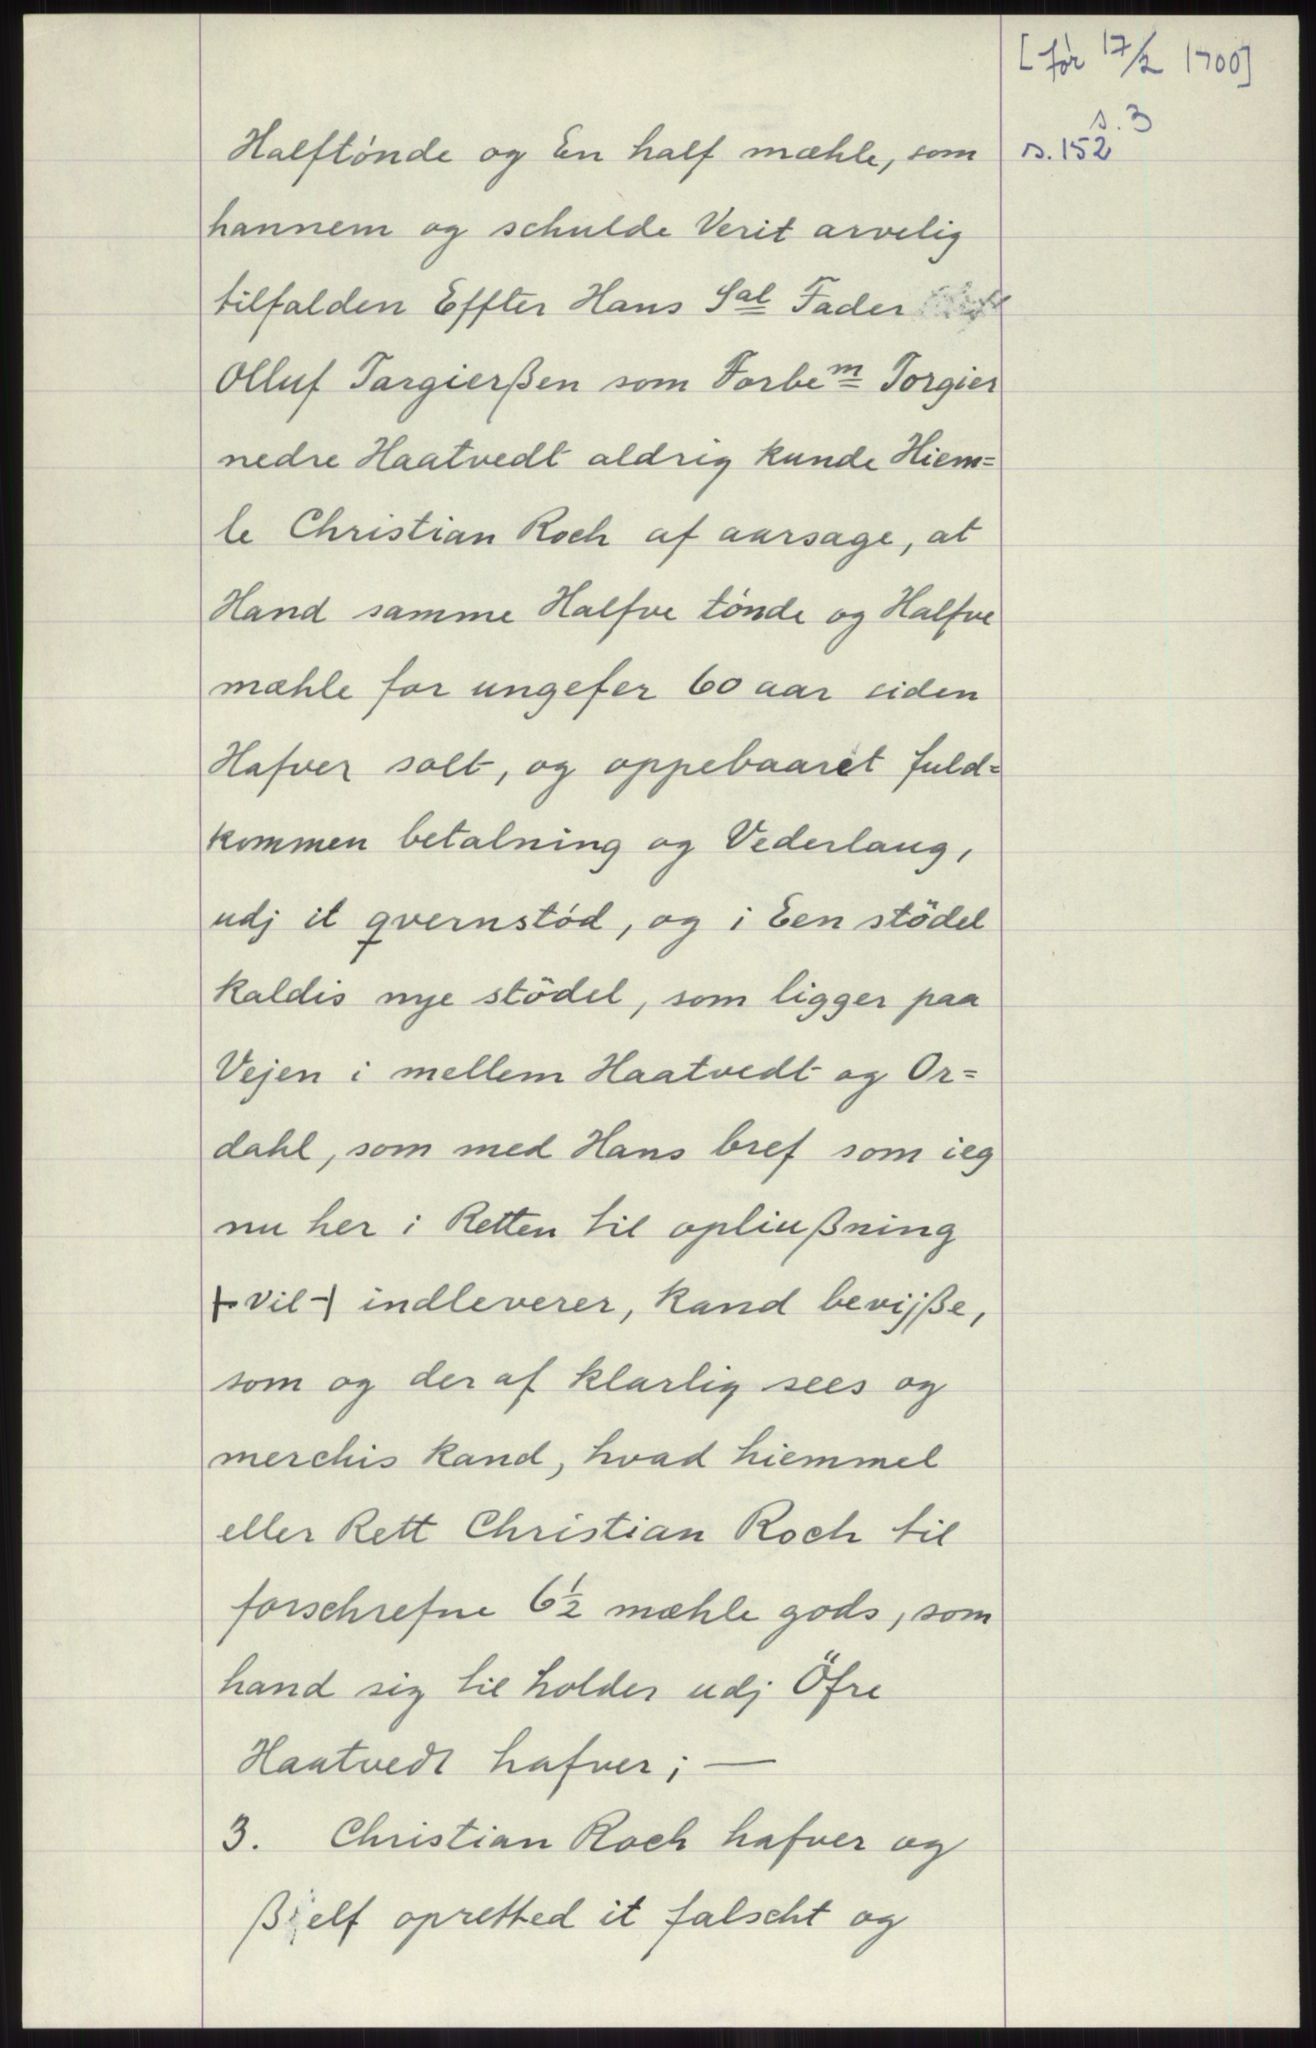 [før 17/2 1700]
s. 3
s. 152
Halftónde og En half mæhle, som
hannem og schulde Verit arvelig
tilfalden Effter Hans Sal Fader
Olluf Targierßen som Forbem Torgier
nedre Haatvedt aldrig kunde Hiem=
le Christian Roch af aarsage, at
Hand samme Halfve tónde og Halfve
mæhle for ungefer 60 aar siden
Hafver solt, og oppebaaret fuld=
kommen betalning og Vederlaug,
udj it qvernstód, og i Een stödel
kaldis nye stödel, som ligger paa
Vejen i mellem Haatvedt og Or=
dahl, som med Hans bref som ieg
nu her i Retten til opliußning
vil indleverer, kand bevijße,
som og der af klarlig sees og
merchis kand, hvad hiemmel
eller Rett Christian Roch til
forschrefne 6½ mæhle gods, som
hand sig til holder udj Öfre
Haatvedt hafver; —
3. Christian Roch hafver og
ßielf opretted it falscht og